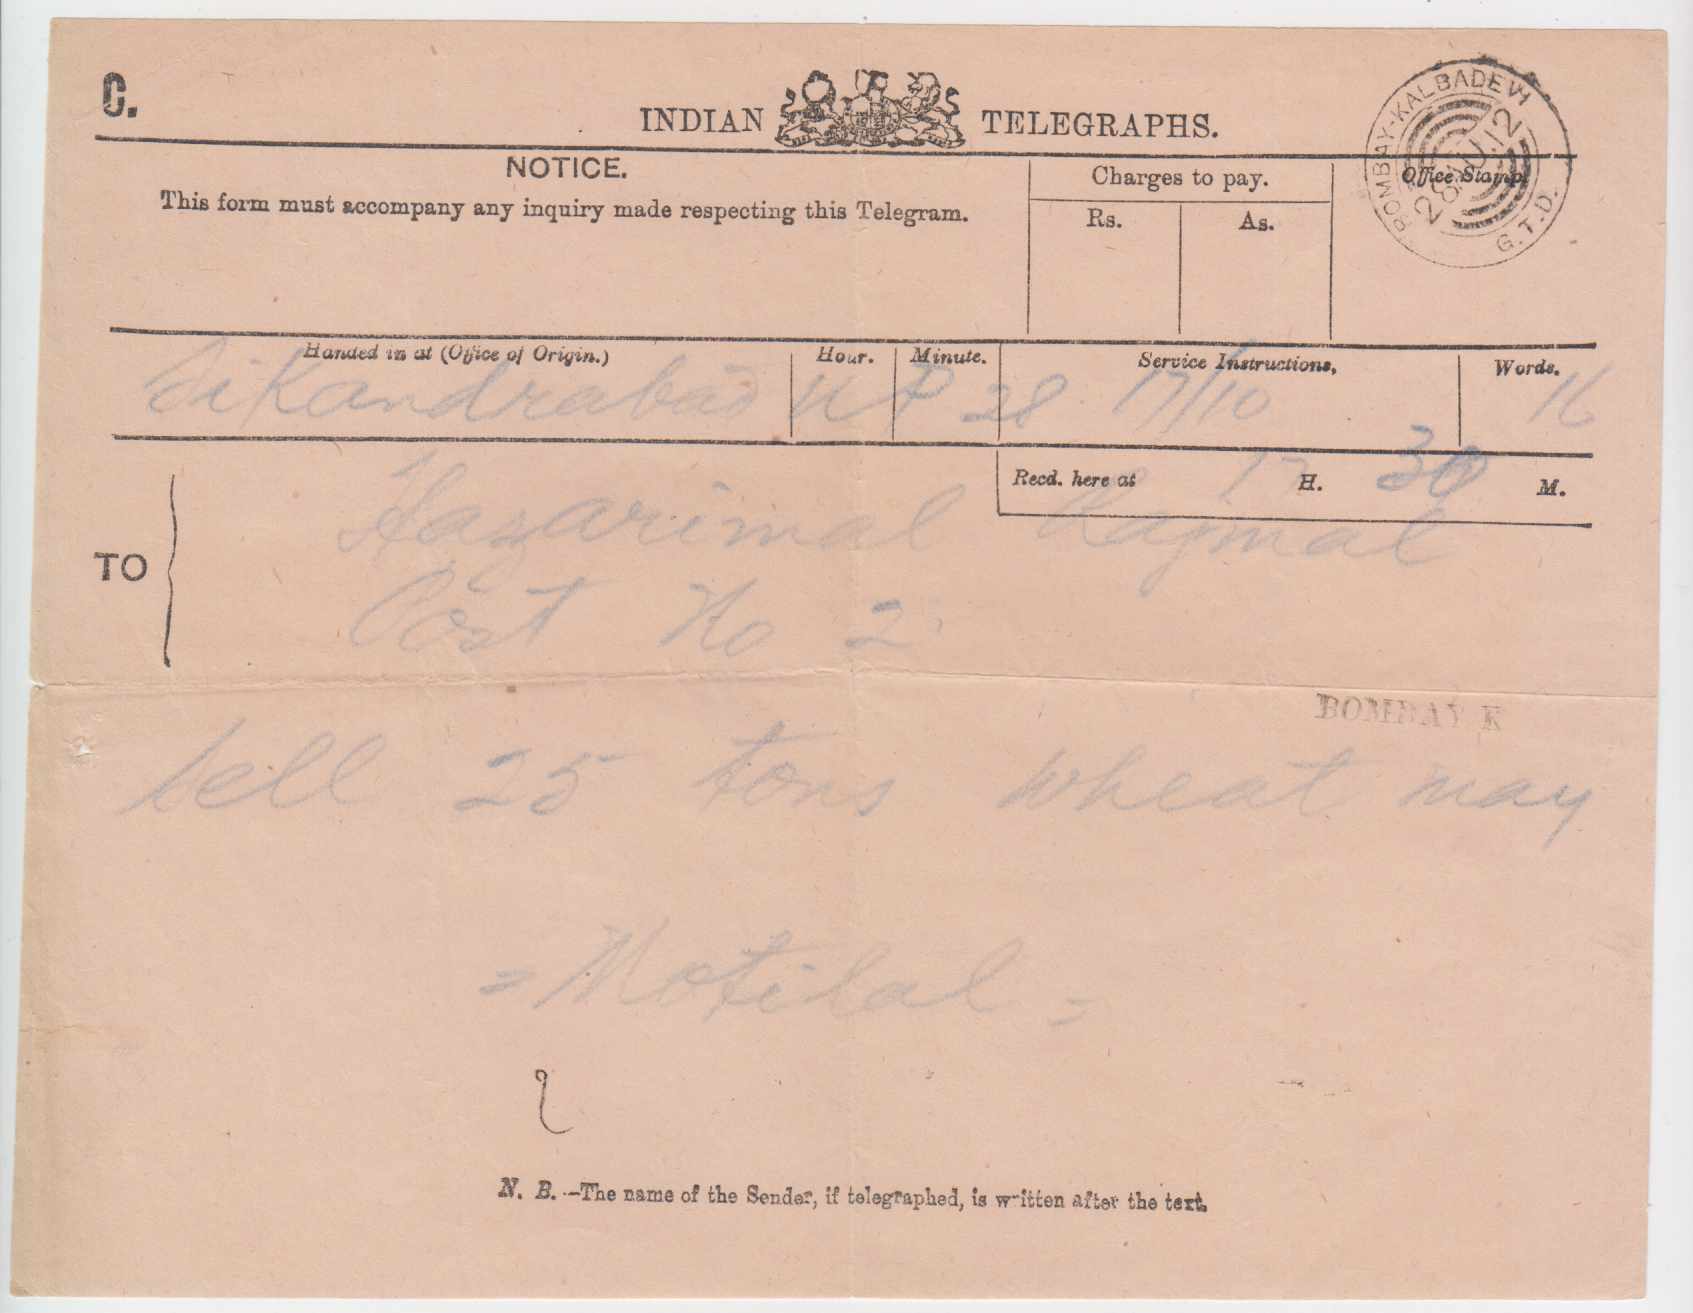 C.
INDIAN TELEGRAPHS.
BOMBAY-KALBADEVI
G.T.D.
NOTICE.
This form must accompany any inquiry made respecting this Telegram.
Charges to pay.
Rs. As.
Office Stamp.
Handed in at (Office of Origin.) Hour. Minute. Service Instructions, Words.
Sikandrabad 28 17/10 16
Recd. here at 17 H. 30 M.
TO
Hazarimal Rajmal
Post No 2
BOMBAY K
Sell 25 tons wheat may
= Motilal =
N. B.—The name of the Sender, if telegraphed, is written after the text.